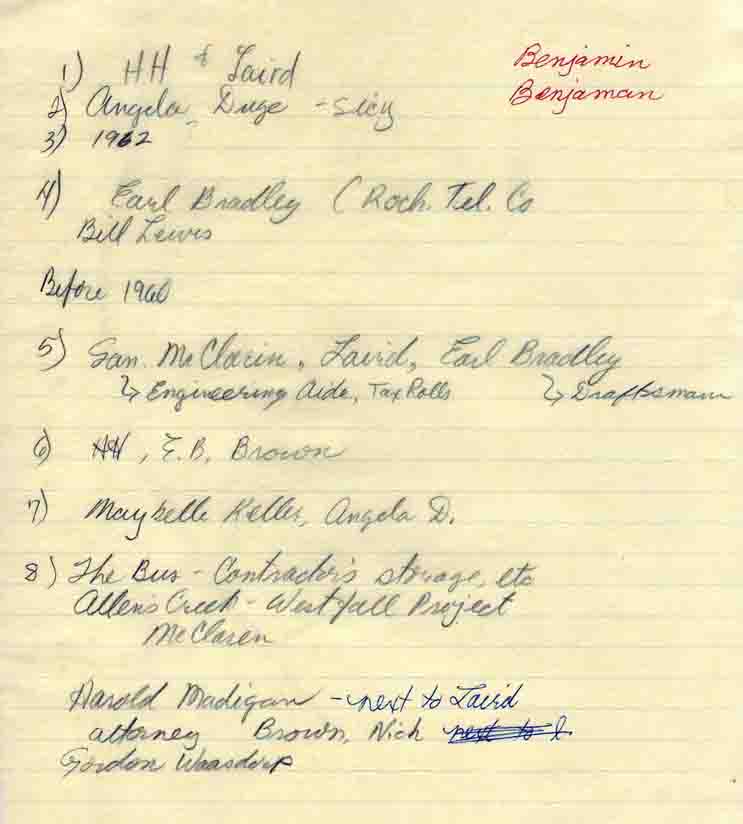 1) HH & Laird
Benjamin
Benjaman
2) Angela Duge - sicy
3) 1962
4) Earl Bradley (Roch. Tel. Co
Bill Lewis
Before 1960
5) San. McClarin, Laird, Earl Bradley
↳ Engineering Aide, Tax Rolls ↳ Draftsmann
6) HH, E.B. Brown
7) Maybelle Keller, Angela D.
8) The Bus - Contractor's storage, etc
Allen's Creek - Westfall Project
McClaren
Harold Madigan - next to Laird
attorney Brown, Nick next to L
Gordon Waasdorp